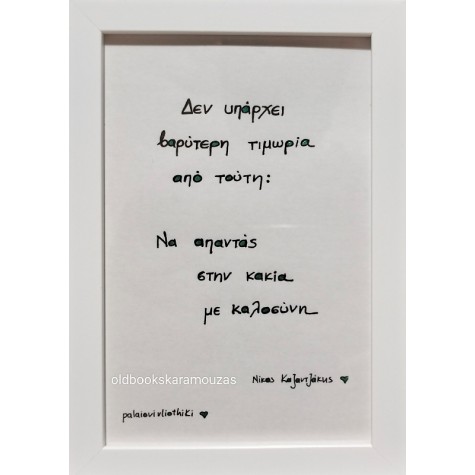 Δεν υπάρχει
βαρύτερη τιμωρία
από τούτη:
Να απαντάς
στην κακία
με καλοσύνη
Νίκος Καζαντζάκης
oldbookskaramouzas
palaiovivliothiki